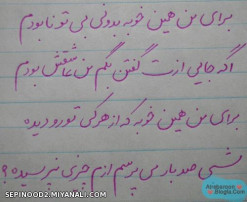 برای من همین خوبه بدونی بی تو نابودم
اگه جایی ازت گفتن بگم من عاشقش بودم
برای من همین خوبه که از هر کی تو رو دیده
شبی صد بار می پرسم ازم چیزی نپرسیده؟
SEPINOOD2.MIYANALI.COM